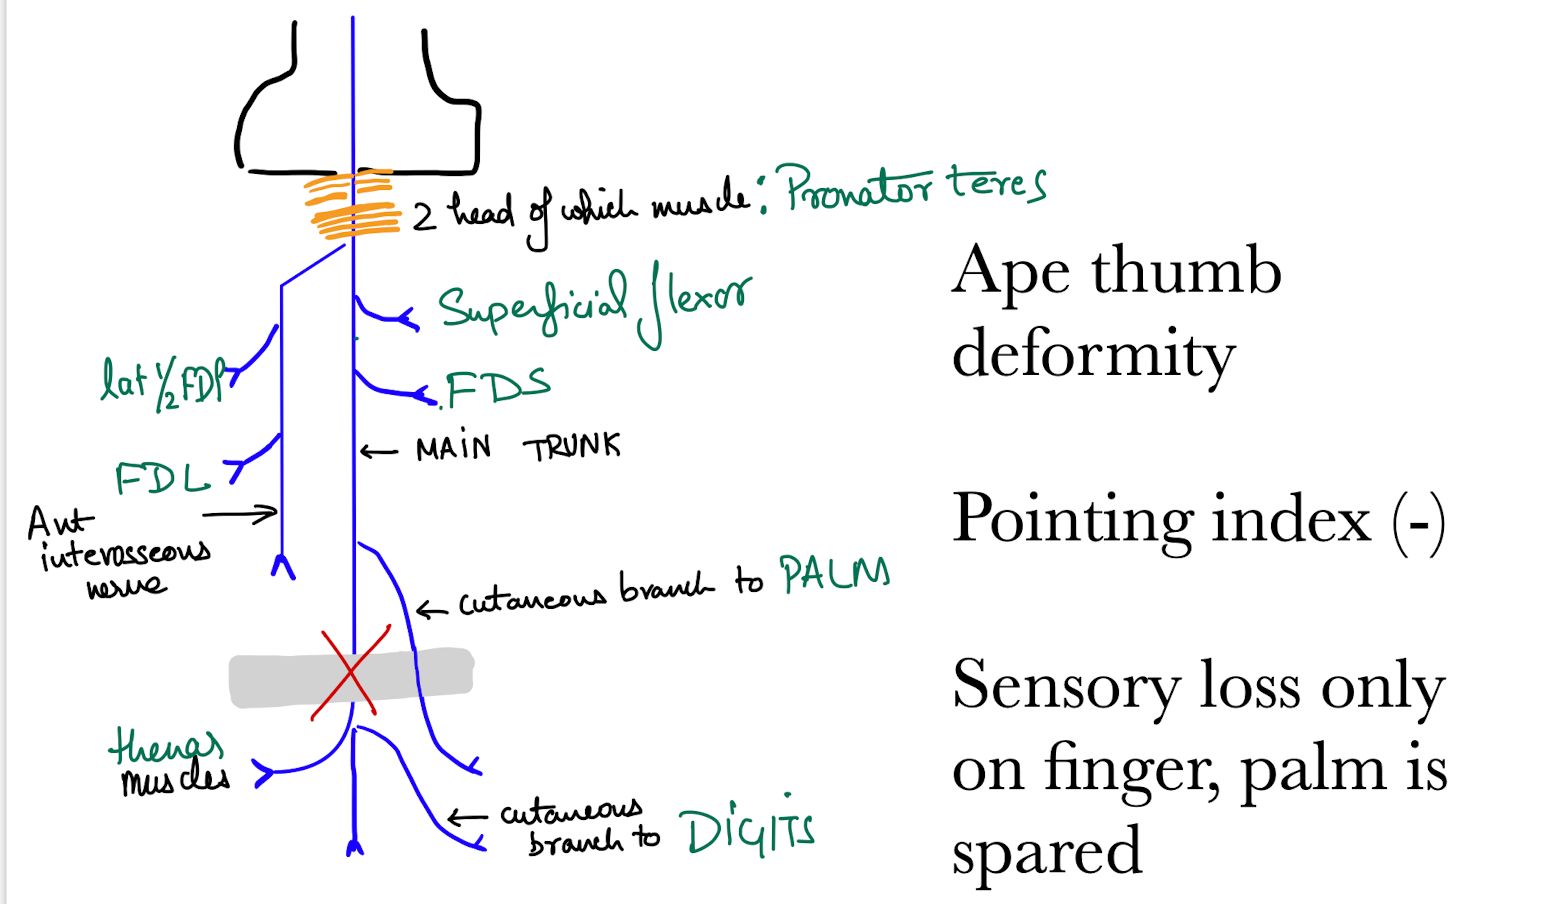 2 head of which muscle: Pronator teres
Superficial flexor
lat 1/2 FDP
FDS
← MAIN TRUNK
FDL
Ant
interosseous
nerve
← cutaneous branch to PALM
thenar
muscles
← cutaneous
branch to DIGITS
Ape thumb
deformity
Pointing index (-)
Sensory loss only
on finger, palm is
spared